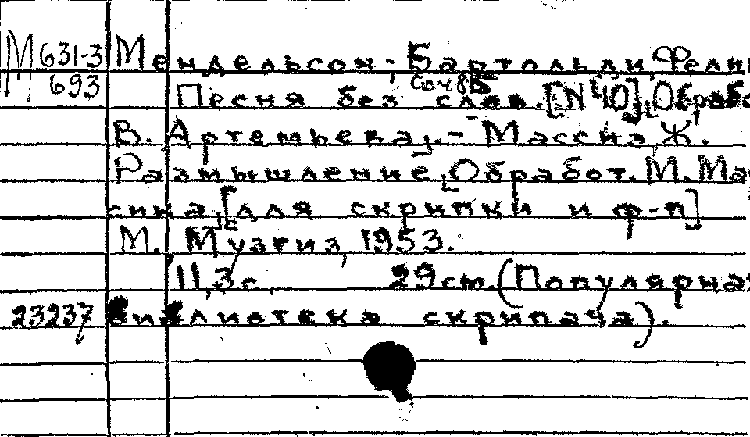 М 631-3 Мендельсон-Бартольди, Фели
693 Соч 85
Песня без слов. [N 40], Обрабо
В. Артемьева,. – Массна, Ж.
Размышление, Обработ. М. Ма
сика, [для скрипки и ф-п]
М. Музгиз, 1953.
11, 3 с. 29 см. (Популярная
23237 библиотека скрипача).